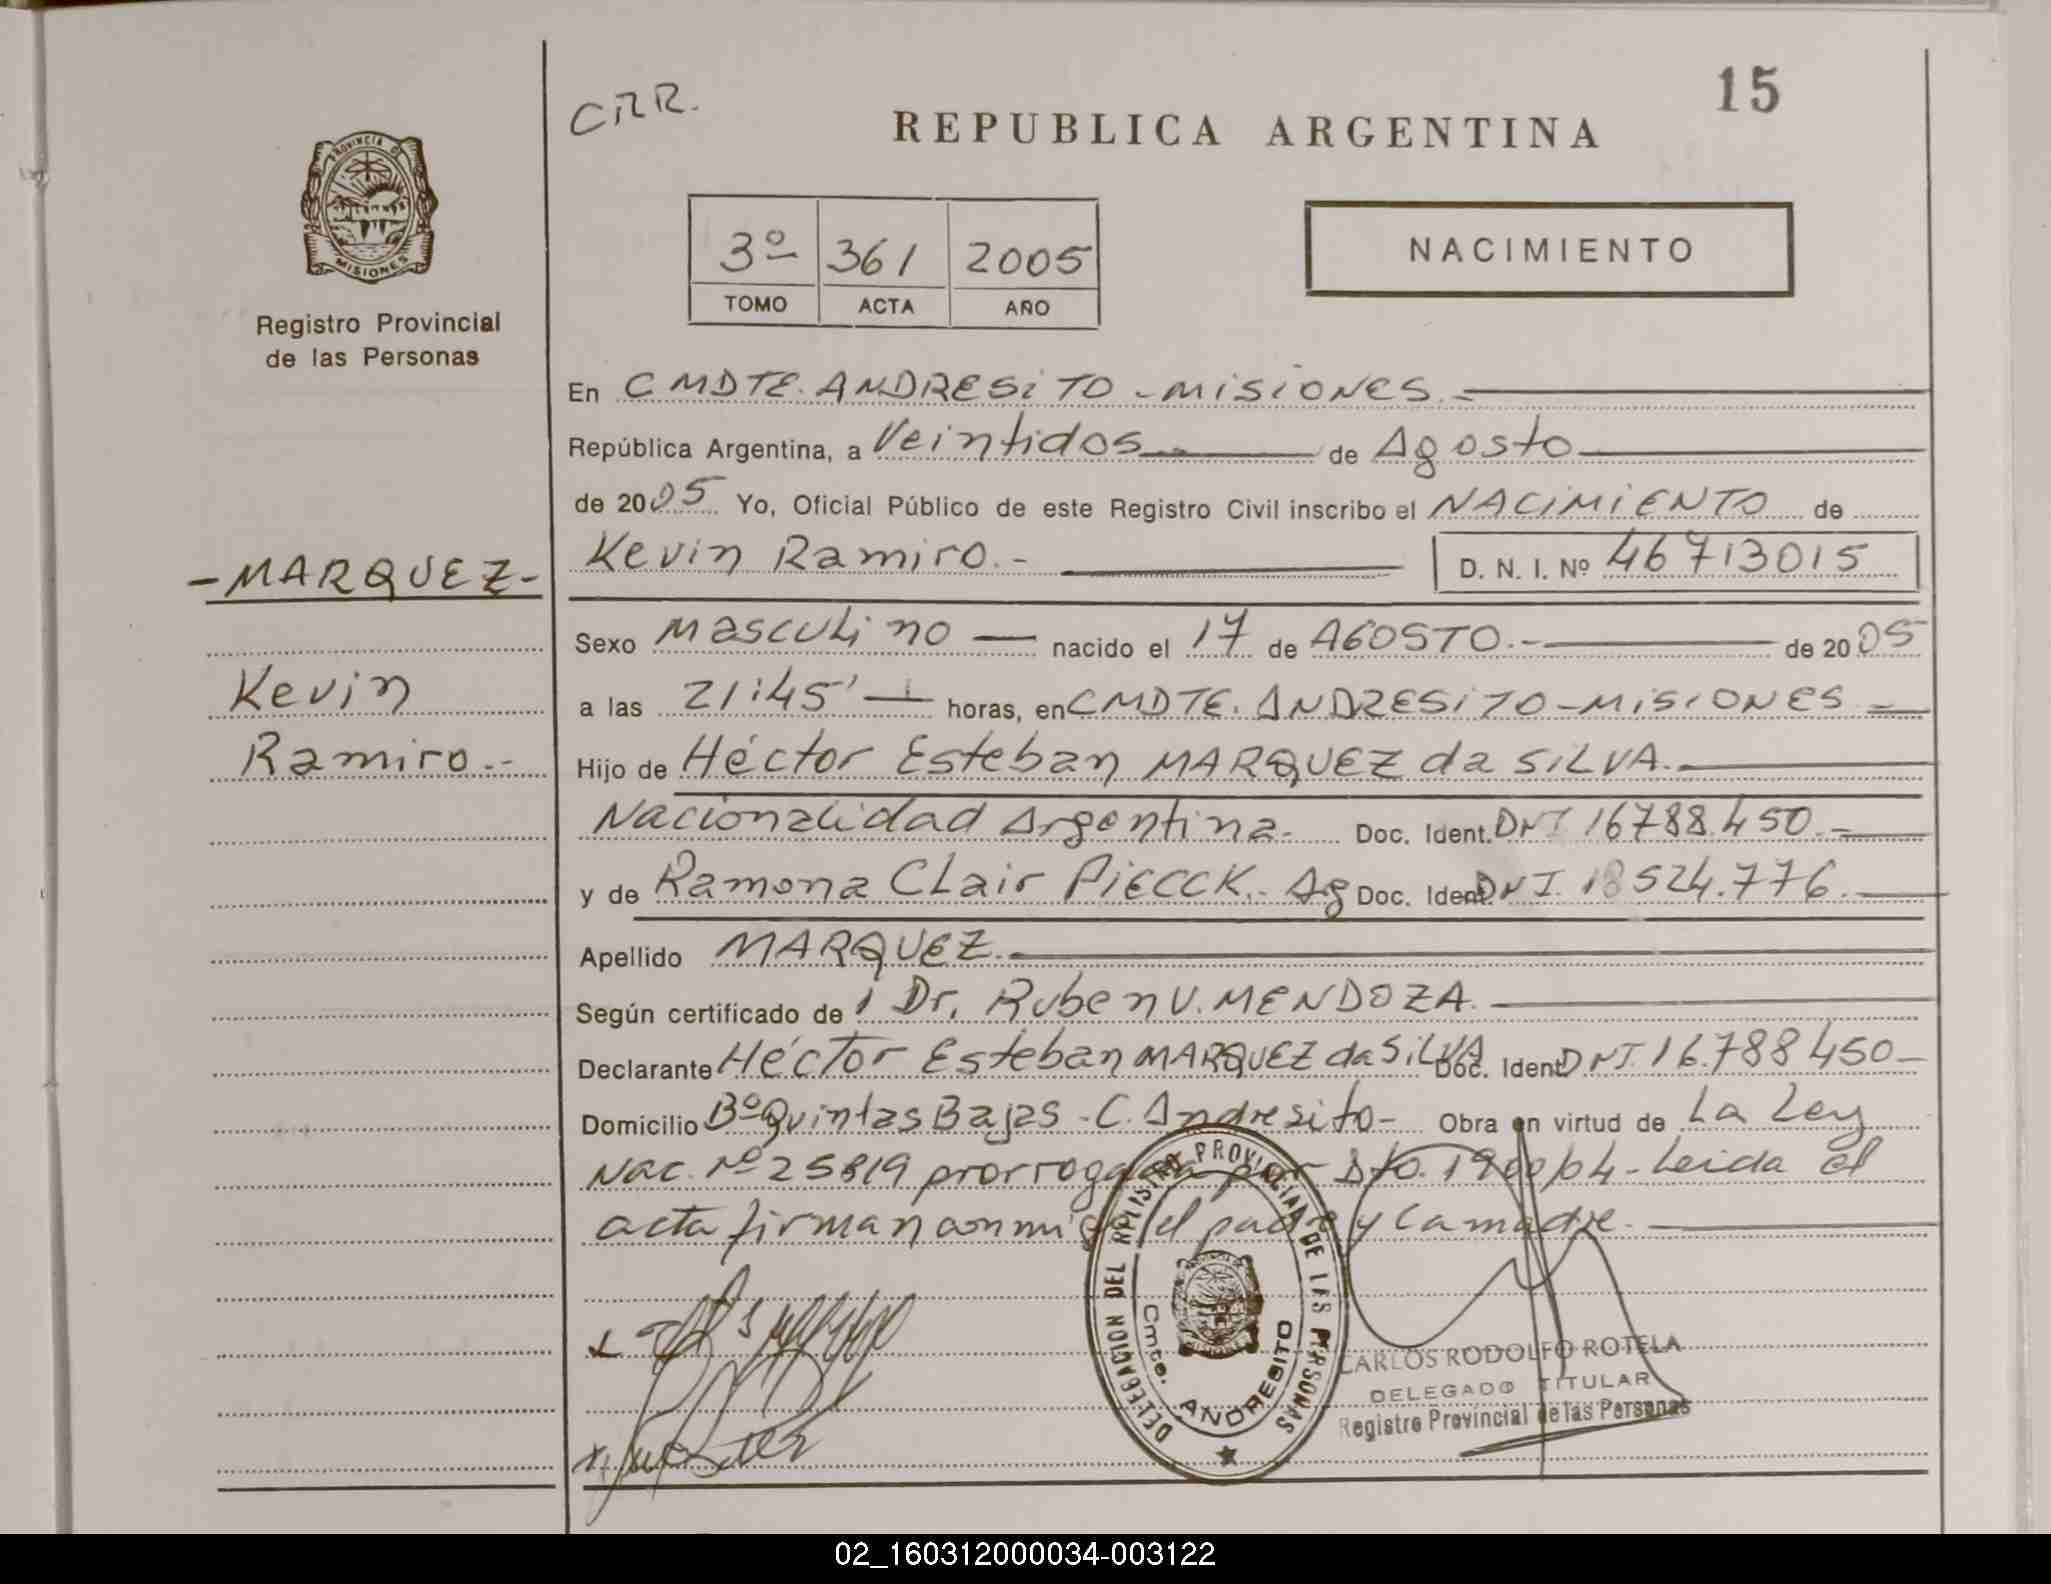 15
CRR.
REPUBLICA ARGENTINA
PROVINCIA DE
MISIONES
Registro Provincial
de las Personas
3º 361 2005
TOMO ACTA AÑO
NACIMIENTO
En CMDTE. ANDRESITO - MISIONES.-
República Argentina, a Veintidos de Agosto
de 2005 Yo, Oficial Público de este Registro Civil inscribo el NACIMIENTO de
-MARQUEZ-
Kevin Ramiro.- D. N. I. Nº 46713015
Sexo Masculino nacido el 17 de AGOSTO.- de 2005
Kevin
a las 21:45' horas, en CMDTE. ANDRESITO-MISIONES
Ramiro.-
Hijo de Héctor Esteban MARQUEZ da SILVA.
Nacionalidad Argentina. Doc. Ident. DNI 16788.450.-
y de Ramona Clair PIECCK.- Ag Doc. Ident. DNI. 18524.776.
Apellido MARQUEZ.
Según certificado de Dr. Ruben V. MENDOZA.
Declarante Héctor Esteban MARQUEZ da SILVA Doc. Ident. DNI. 16.788450-
Domicilio Bº Quintas Bajas - C. Andresito- Obra en virtud de La Ley
Nac. Nº 25819 prorrogada por Dto. 1900/04 - Leida el
acta firman conmigo el padre y la madre.
DELEGACION DEL REGISTRO PROVINCIAL DE LAS PERSONAS
Cmte. ANDRESITO
CARLOS RODOLFO ROTELA
DELEGADO TITULAR
Registro Provincial de las Personas
02_160312000034-003122